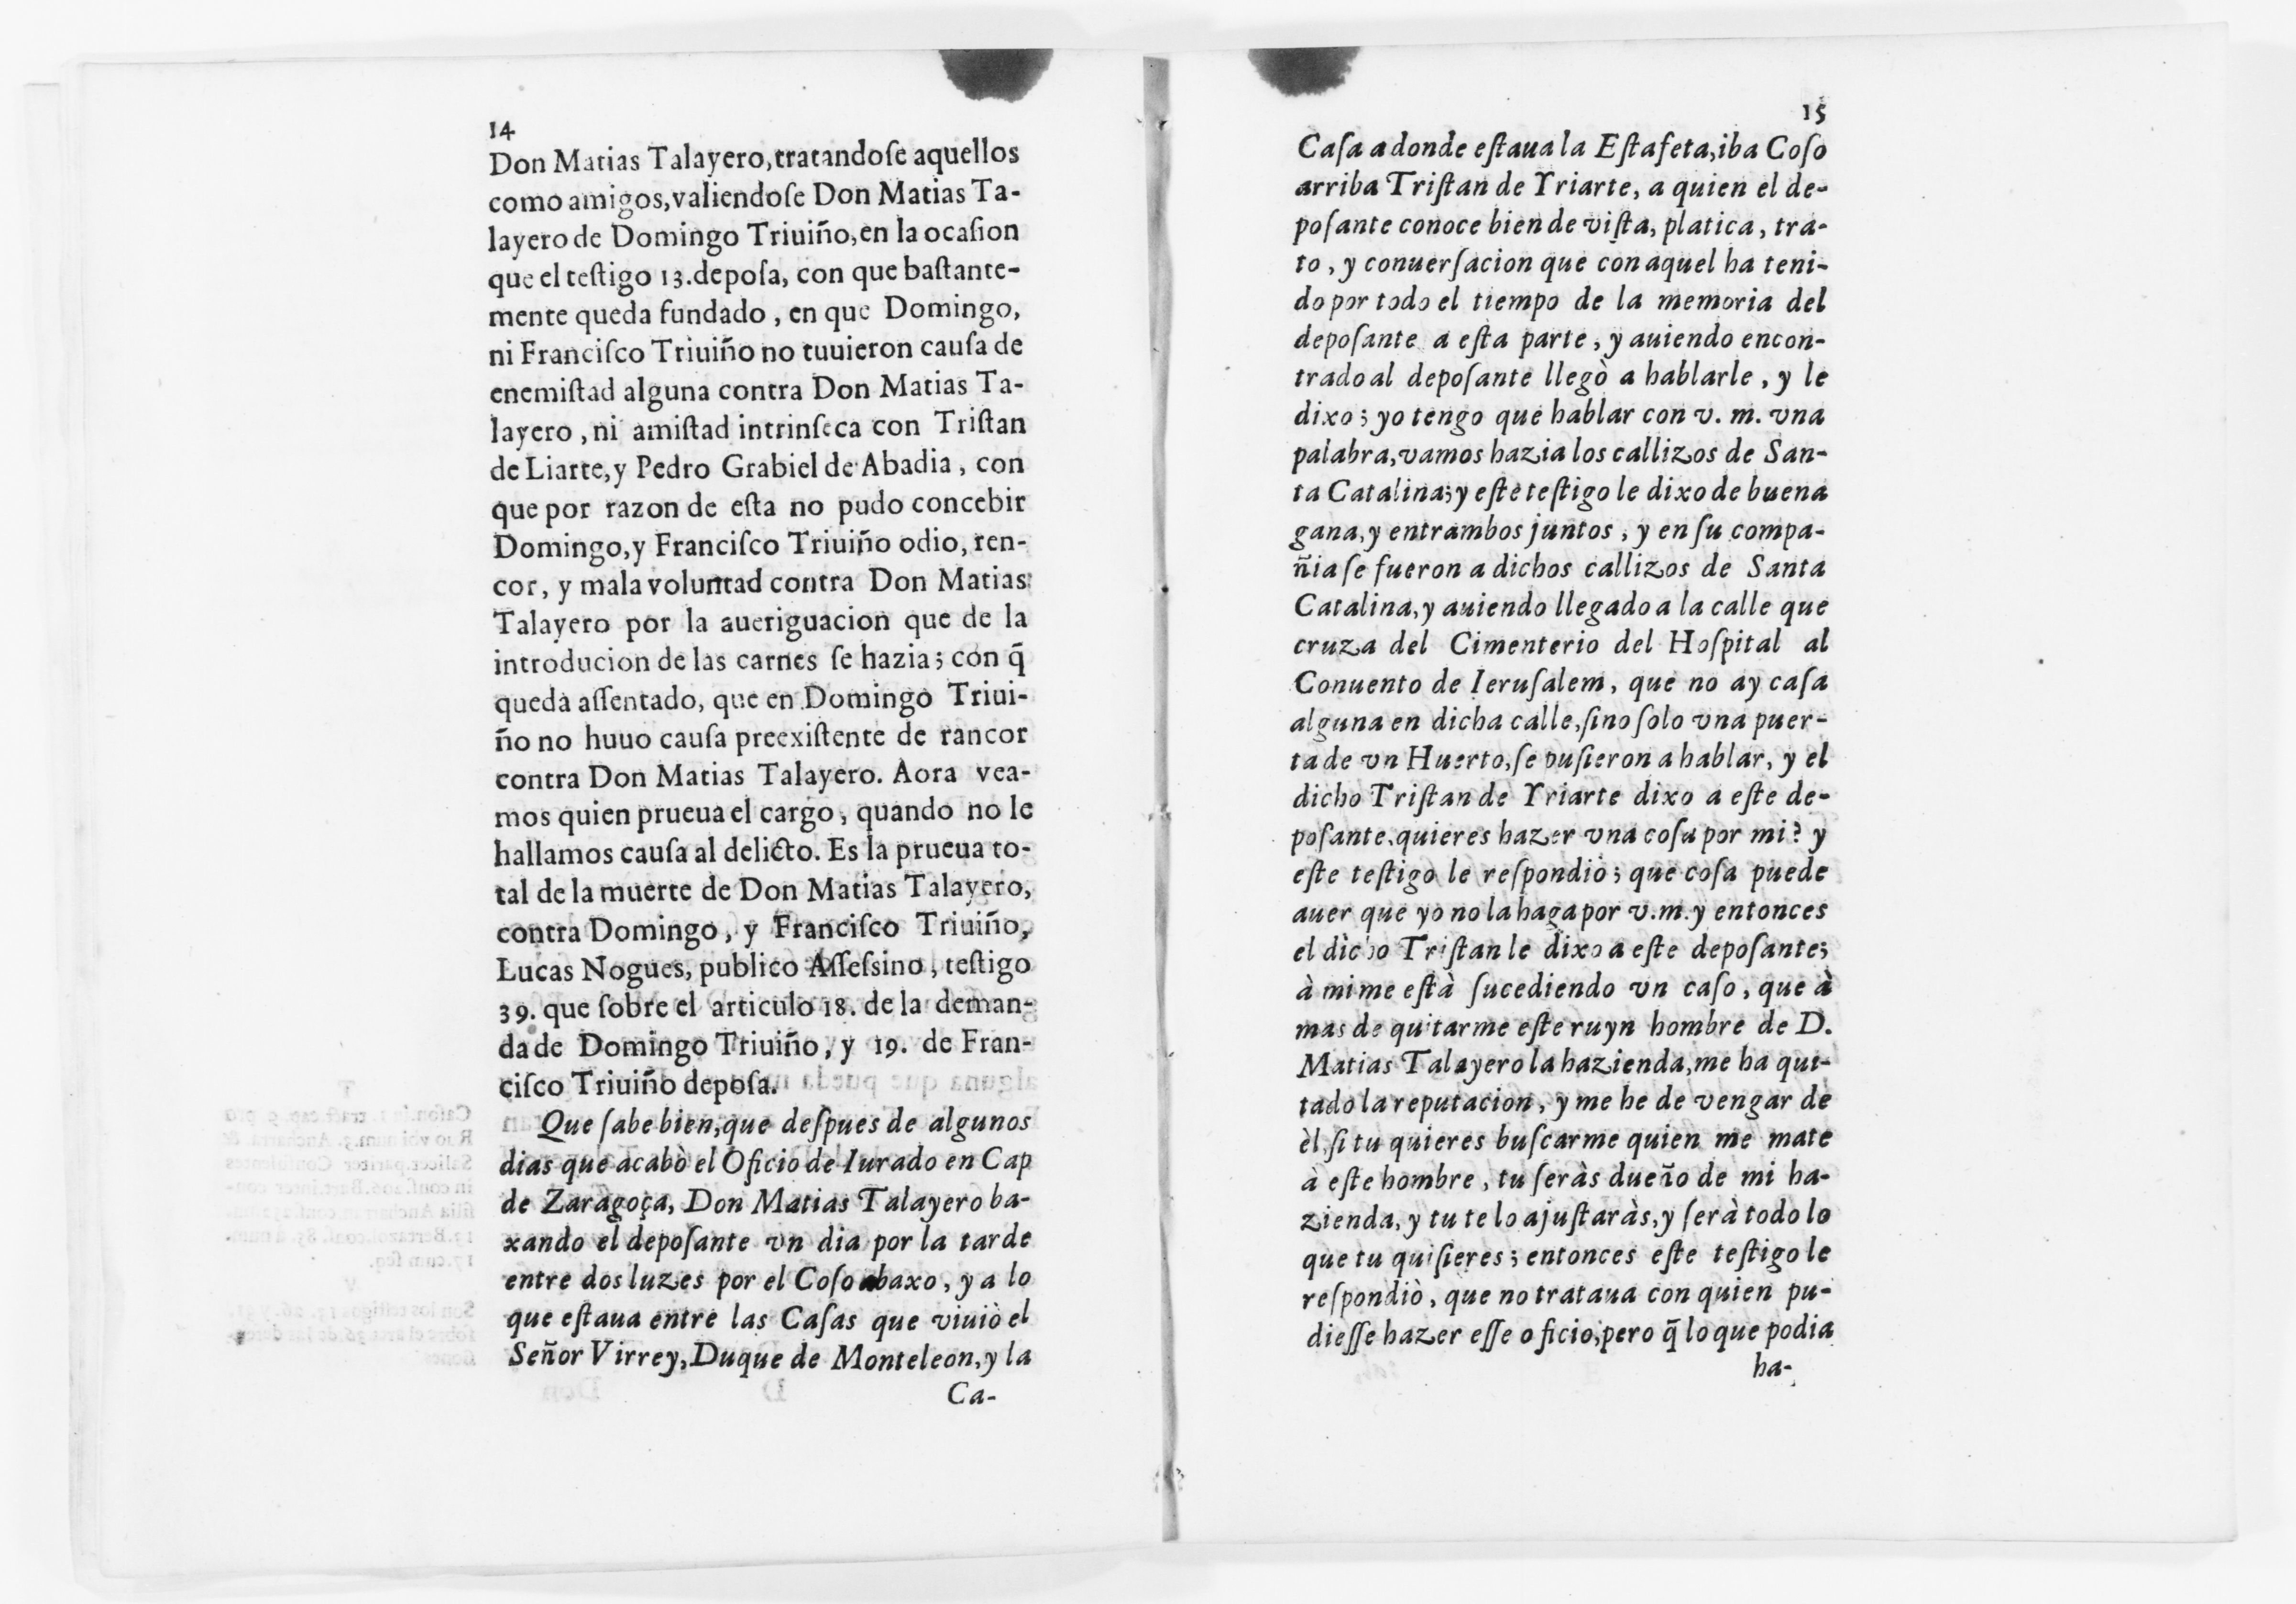 14
Don Matias Talayero, tratandoſe aquellos
como amigos, valiendoſe Don Matias Ta-
layero de Domingo Triuiño, en la ocaſion
que el teſtigo 13. depoſa, con que baſtante-
mente queda fundado, en que Domingo,
ni Franciſco Triuiño no tuuieron cauſa de
enemiſtad alguna contra Don Matias Ta-
layero, ni amiſtad intrinſeca con Triſtan
de Liarte, y Pedro Grabiel de Abadia, con
que por razon de eſta no pudo concebir
Domingo, y Franciſco Triuiño odio, ren-
cor, y mala voluntad contra Don Matias
Talayero por la aueriguacion que de la
introducion de las carnes ſe hazia; con q̃
queda aſſentado, que en Domingo Triui-
ño no huuo cauſa preexiſtente de rancor
contra Don Matias Talayero. Aora vea-
mos quien prueua el cargo, quando no le
hallamos cauſa al delicto. Es la prueua to-
tal de la muerte de Don Matias Talayero,
contra Domingo, y Franciſco Triuiño,
Lucas Nogues, publico Aſſeſsino, teſtigo
39. que ſobre el articulo 18. de la deman-
da de Domingo Triuiño, y 19. de Fran-
ciſco Triuiño depoſa.
Que ſabe bien, que deſpues de algunos
dias que acabò el Oficio de Iurado en Cap
de Zaragoça, Don Matias Talayero ba-
xando el depoſante vn dia por la tarde
entre dos luzes por el Coſo abaxo, y a lo
que eſtaua entre las Caſas que viuiò el
Señor Virrey, Duque de Monteleon, y la
Ca-
15
Caſa a donde eſtaua la Eſtafeta, iba Coſo
arriba Triſtan de Yriarte, a quien el de-
poſante conoce bien de viſta, platica, tra-
to, y conuerſacion que con aquel ha teni-
do por todo el tiempo de la memoria del
depoſante a eſta parte, y auiendo encon-
trado al depoſante llegò a hablarle, y le
dixo; yo tengo que hablar con v. m. vna
palabra, vamos hazia los callizos de San-
ta Catalina; y eſte teſtigo le dixo de buena
gana, y entrambos juntos, y en ſu compa-
ñia ſe fueron a dichos callizos de Santa
Catalina, y auiendo llegado a la calle que
cruza del Cimenterio del Hoſpital al
Conuento de Ieruſalem, que no ay caſa
alguna en dicha calle, ſino ſolo vna puer-
ta de vn Huerto, ſe puſieron a hablar, y el
dicho Triſtan de Yriarte dixo a eſte de-
poſante, quieres hazer vna coſa por mi? y
eſte teſtigo le reſpondiò; que coſa puede
auer que yo no la haga por v.m. y entonces
el dicho Triſtan le dixo a eſte depoſante;
à mi me eſtà ſucediendo vn caſo, que à
mas de quitarme eſte ruyn hombre de D.
Matias Talayero la hazienda, me ha qui-
tado la reputacion, y me he de vengar de
èl, ſi tu quieres buſcarme quien me mate
à eſte hombre, tu ſeràs dueño de mi ha-
zienda, y tu te lo ajuſtaràs, y ſerà todo lo
que tu quiſieres; entonces eſte teſtigo le
reſpondiò, que no trataua con quien pu-
dieſſe hazer eſſe oficio, pero q̃ lo que podia
ha-